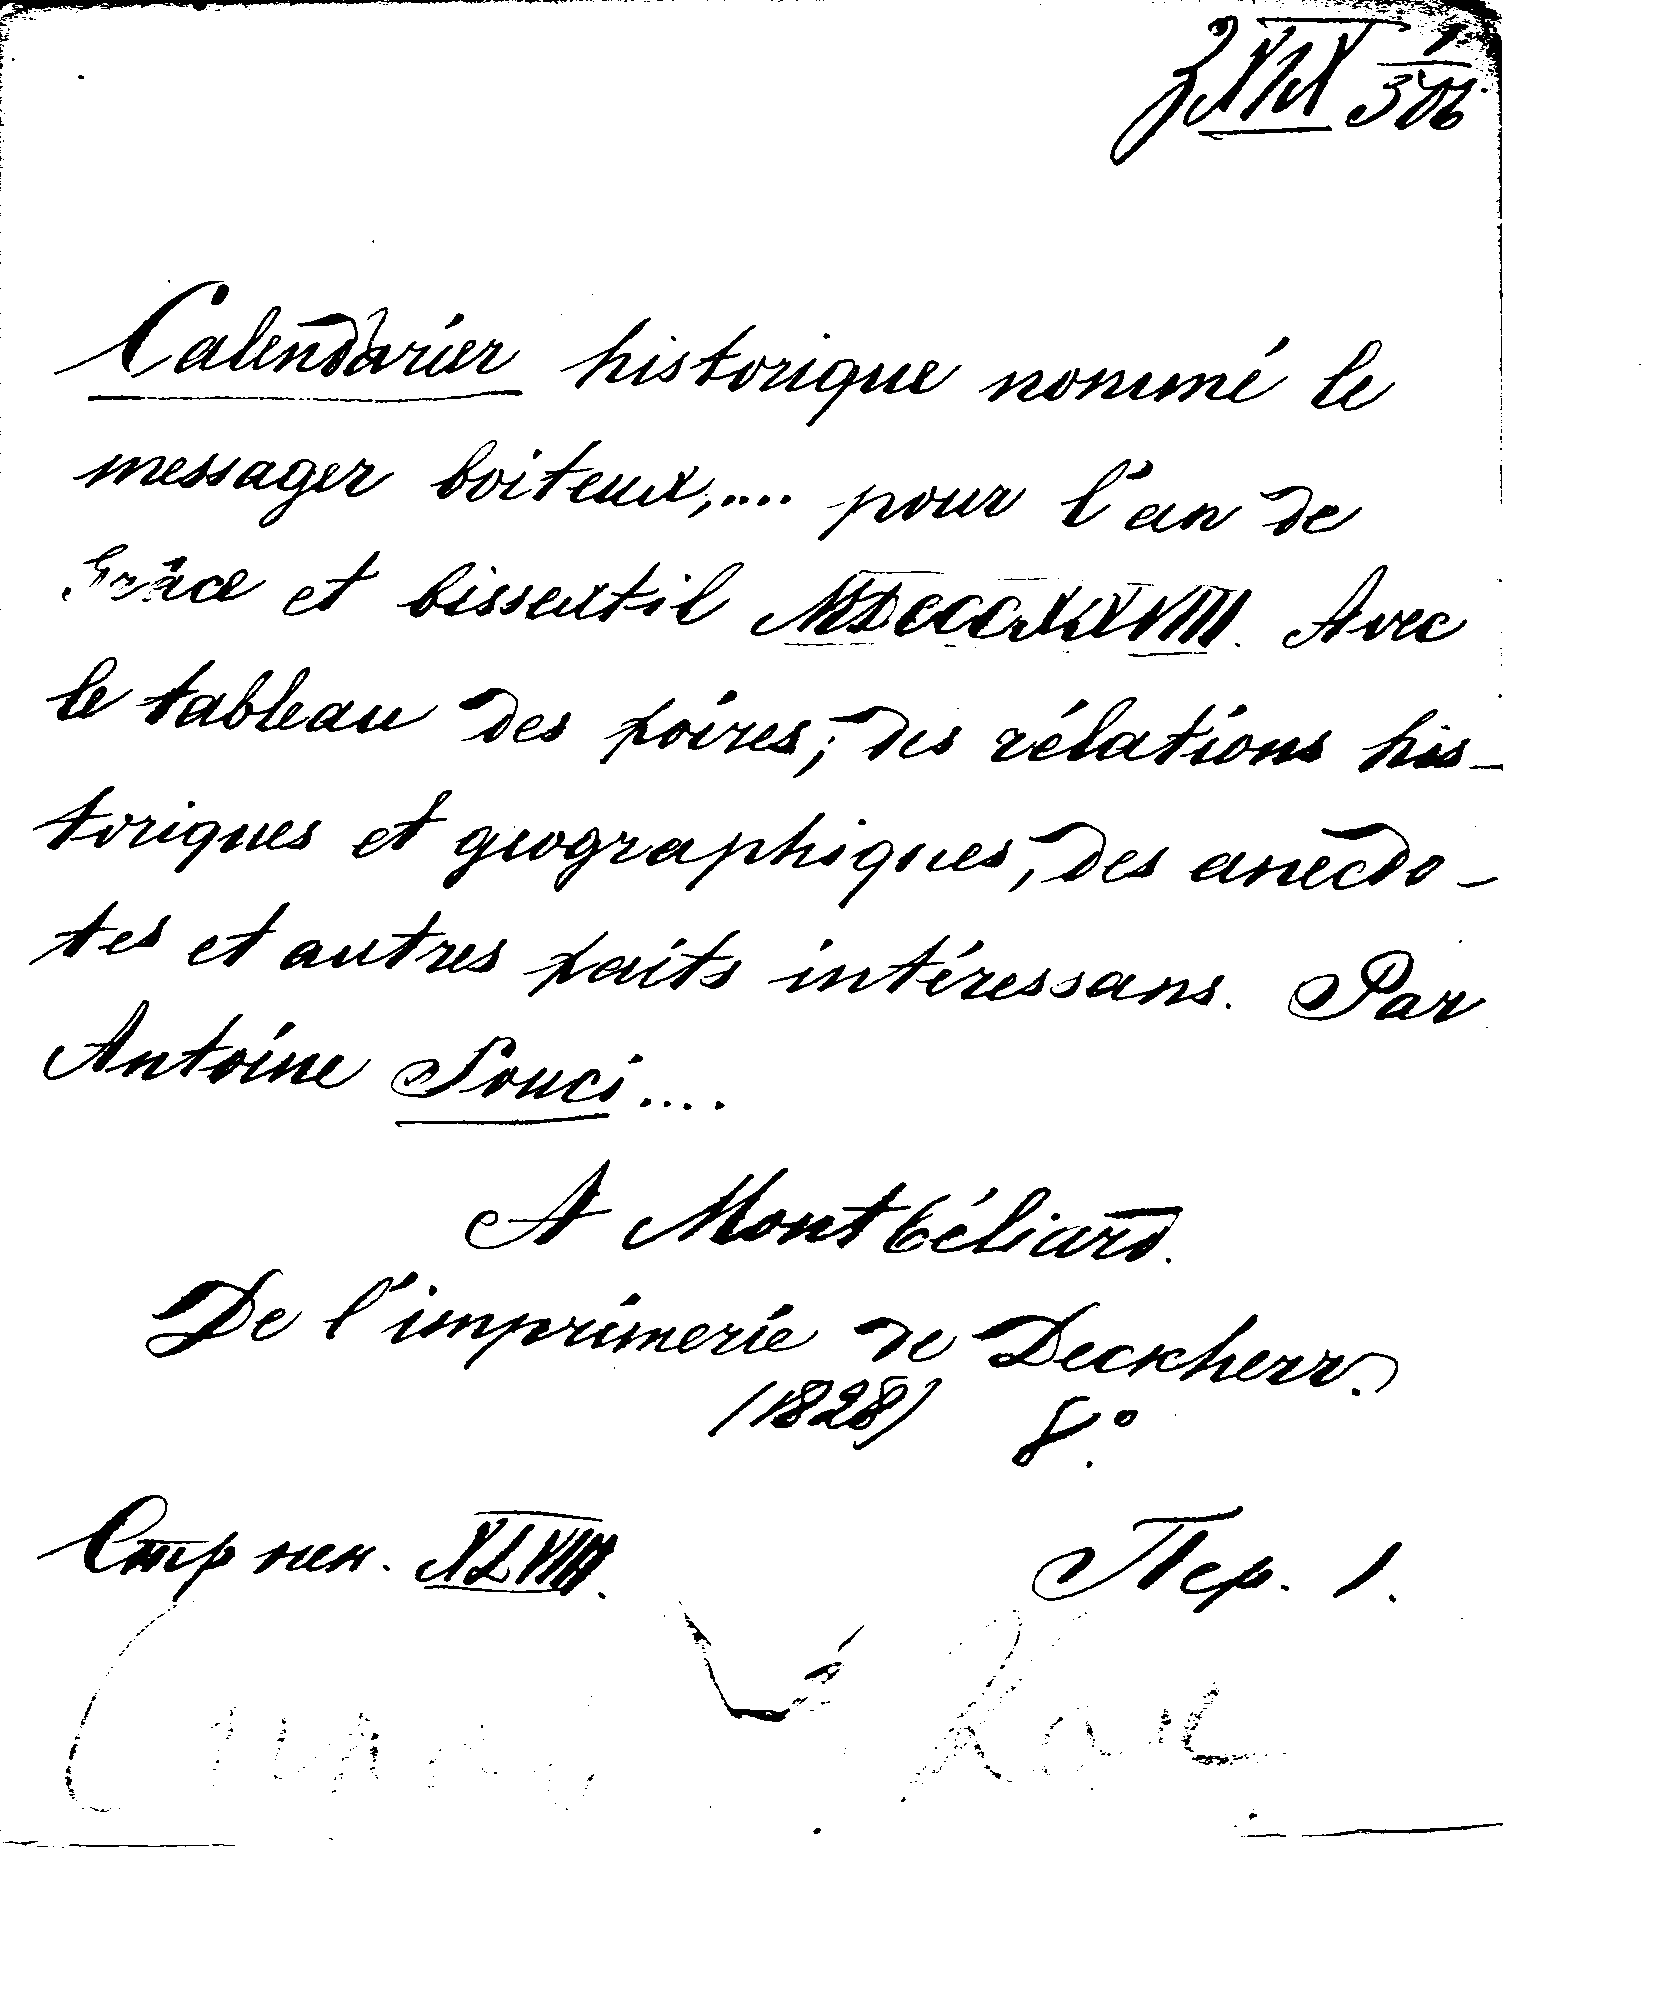 XIX 1/306
Calendarier historique nommé le
messager boiteux,.... pour l'an de
Grâce et bissextil MDCCCXXVIII. Avec
le tableau des foires, des rélations his-
toriques et geographiques, des anecdo-
tes et autres faits intéressans. Par
Antoine Souci....
A Montbéliard.
De l'imprimerie de Deckherr.
(1828) 8°.
Стр нен. XLVIII.
Пер. 1.